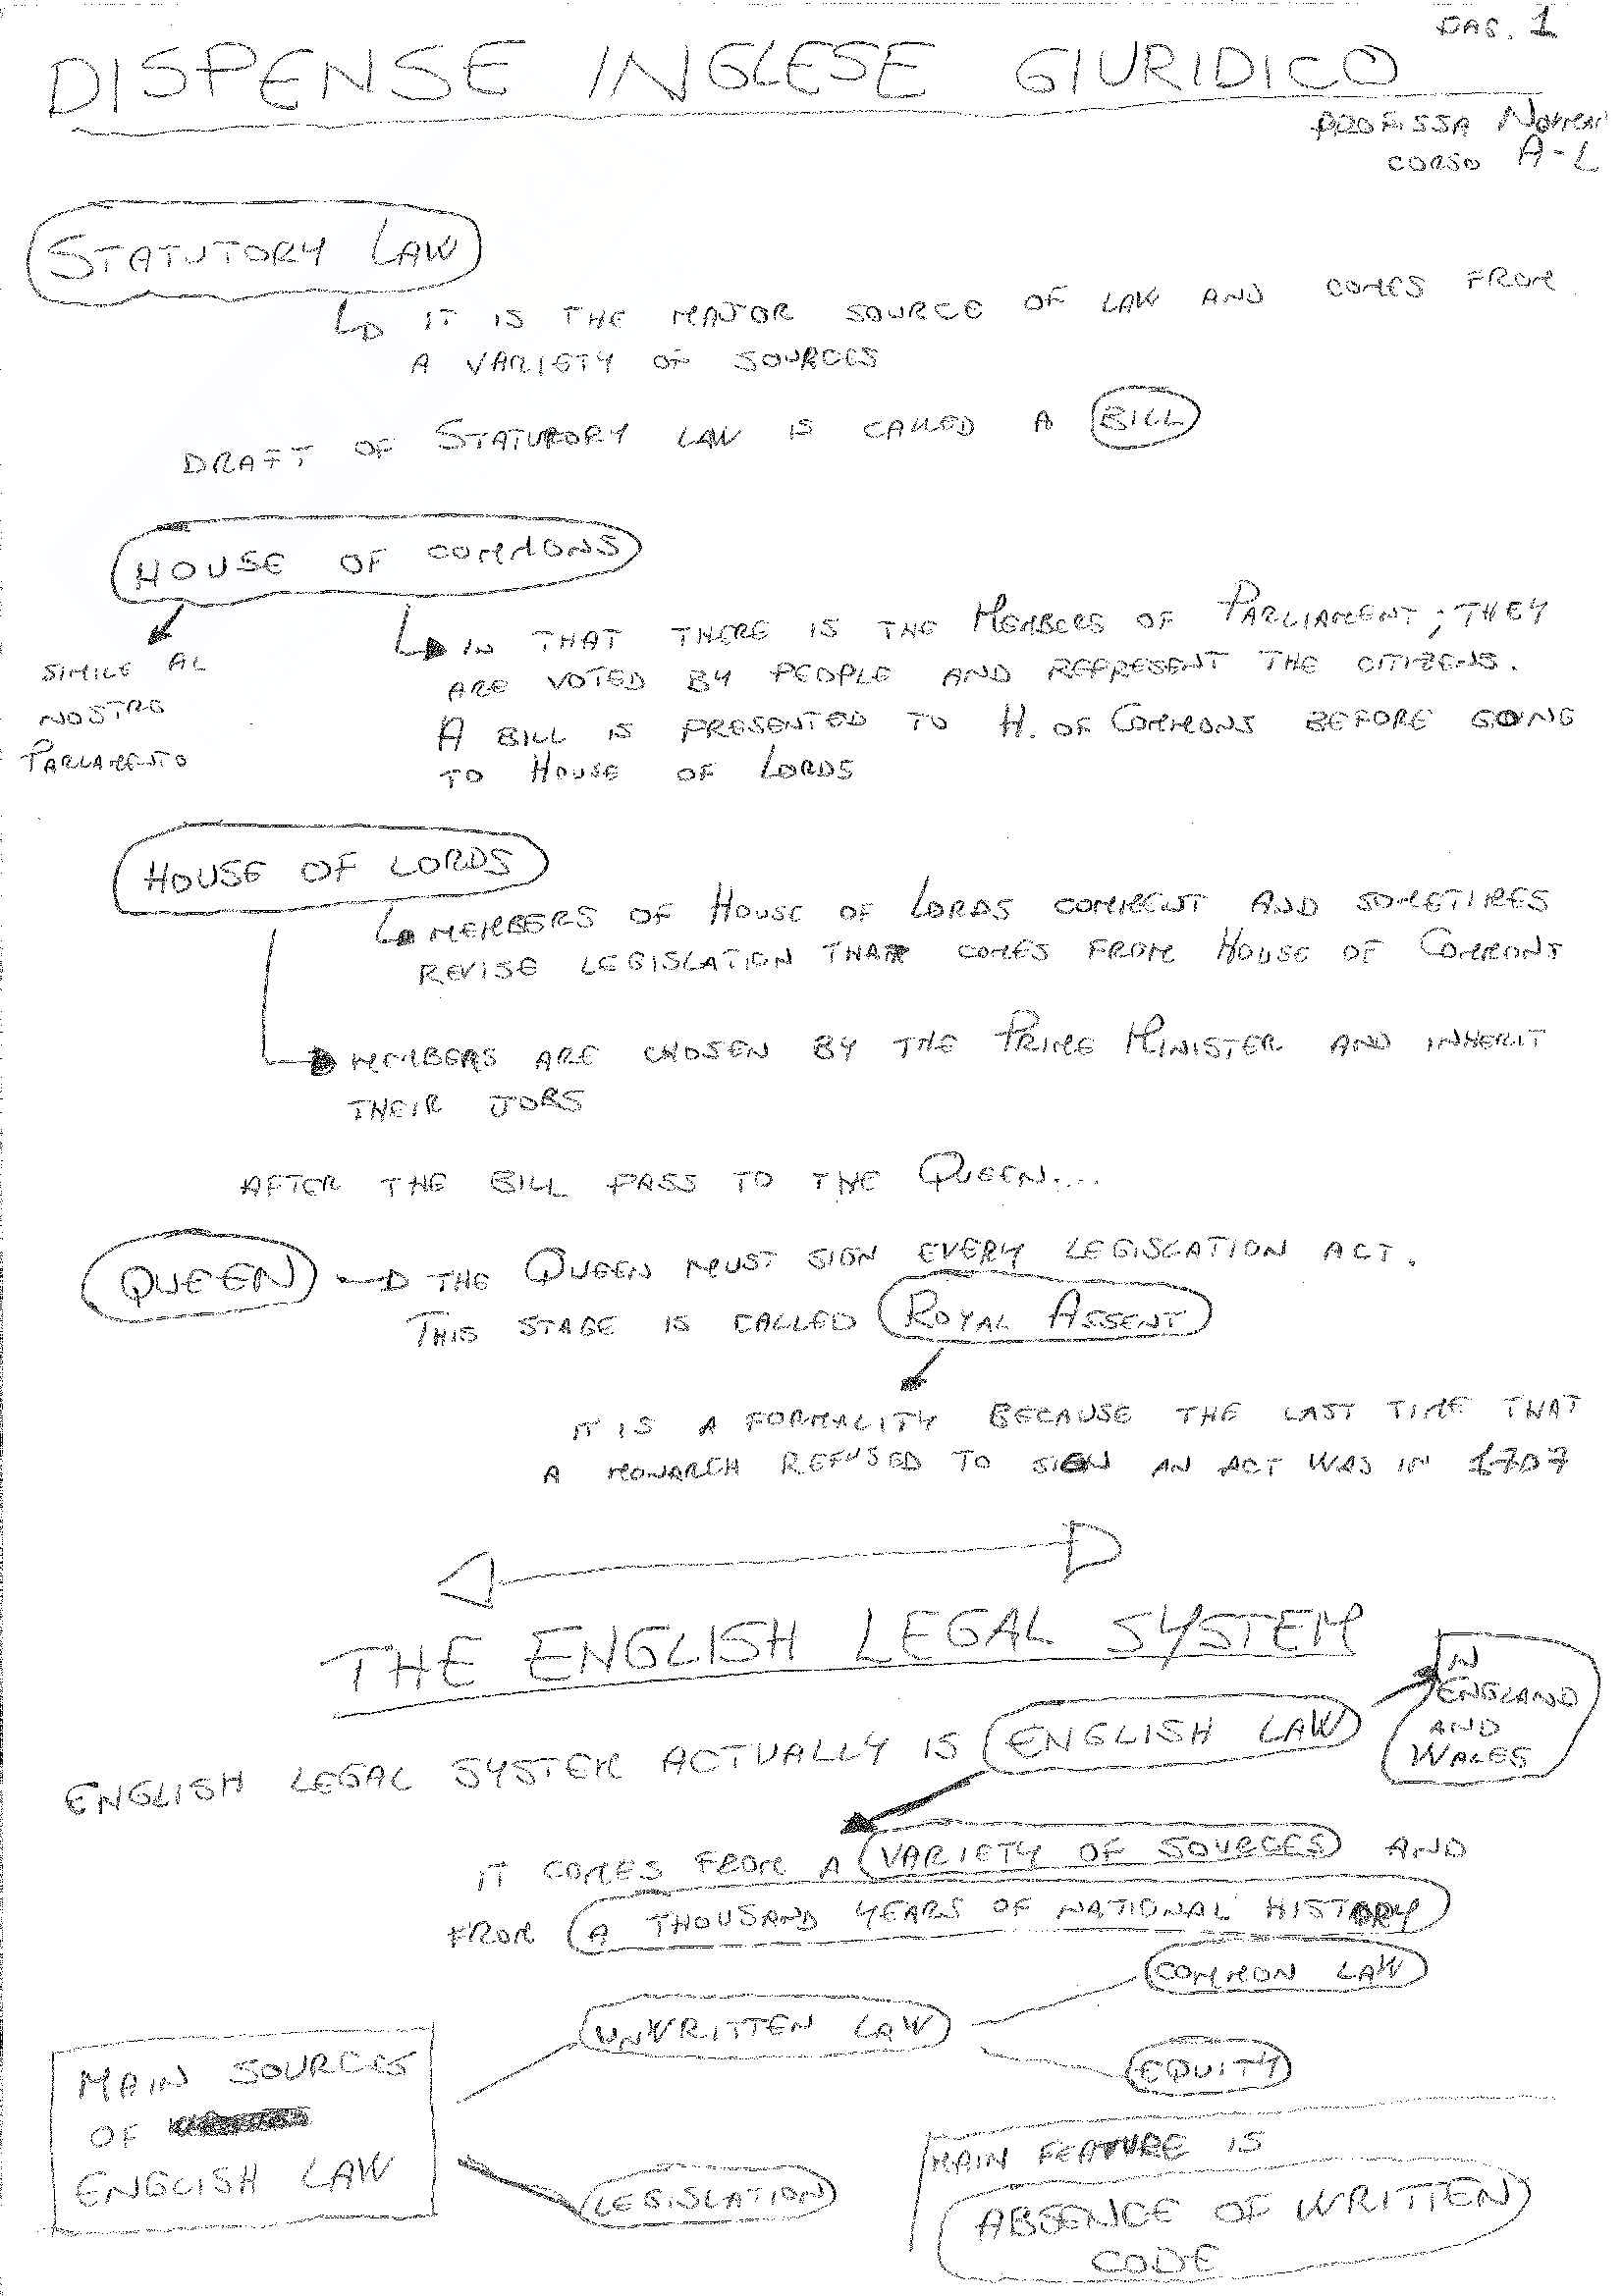 PAG. 1
DISPENSE INGLESE GIURIDICO
PROF.SSA
CORSO A-L
STATUTORY LAW
IT IS THE MAJOR SOURCE OF LAW AND COMES FROM
A VARIETY OF SOURCES
DRAFT OF STATUTORY LAW IS CALLED A BILL
HOUSE OF COMMONS
IN THAT THERE IS THE MEMBERS OF PARLIAMENT; THEY
ARE VOTED BY PEOPLE AND REPRESENT THE CITIZENS.
A BILL IS PRESENTED TO H. OF COMMONS BEFORE GOING
TO HOUSE OF LORDS
SIMILE AL
NOSTRO
PARLAMENTO
HOUSE OF LORDS
MEMBERS OF HOUSE OF LORDS COMMENT AND SOMETIMES
REVISE LEGISLATION THAT COMES FROM HOUSE OF COMMONS
MEMBERS ARE CHOSEN BY THE PRIME MINISTER AND INHERIT
THEIR JOBS
AFTER THE BILL PASS TO THE QUEEN....
QUEEN THE QUEEN MUST SIGN EVERY LEGISLATION ACT.
THIS STAGE IS CALLED ROYAL ASSENT
IT IS A FORMALITY BECAUSE THE LAST TIME THAT
A MONARCH REFUSED TO SIGN AN ACT WAS IN 1707
THE ENGLISH LEGAL SYSTEM
ENGLISH LEGAL SYSTEM ACTUALLY IS ENGLISH LAW
IN
ENGLAND
AND
WALES
IT COMES FROM A VARIETY OF SOURCES AND
FROM A THOUSAND YEARS OF NATIONAL HISTORY
MAIN SOURCES
OF
ENGLISH LAW
UNWRITTEN LAW
COMMON LAW
EQUITY
LEGISLATION
MAIN FEATURE IS
ABSENCE OF WRITTEN
CODE